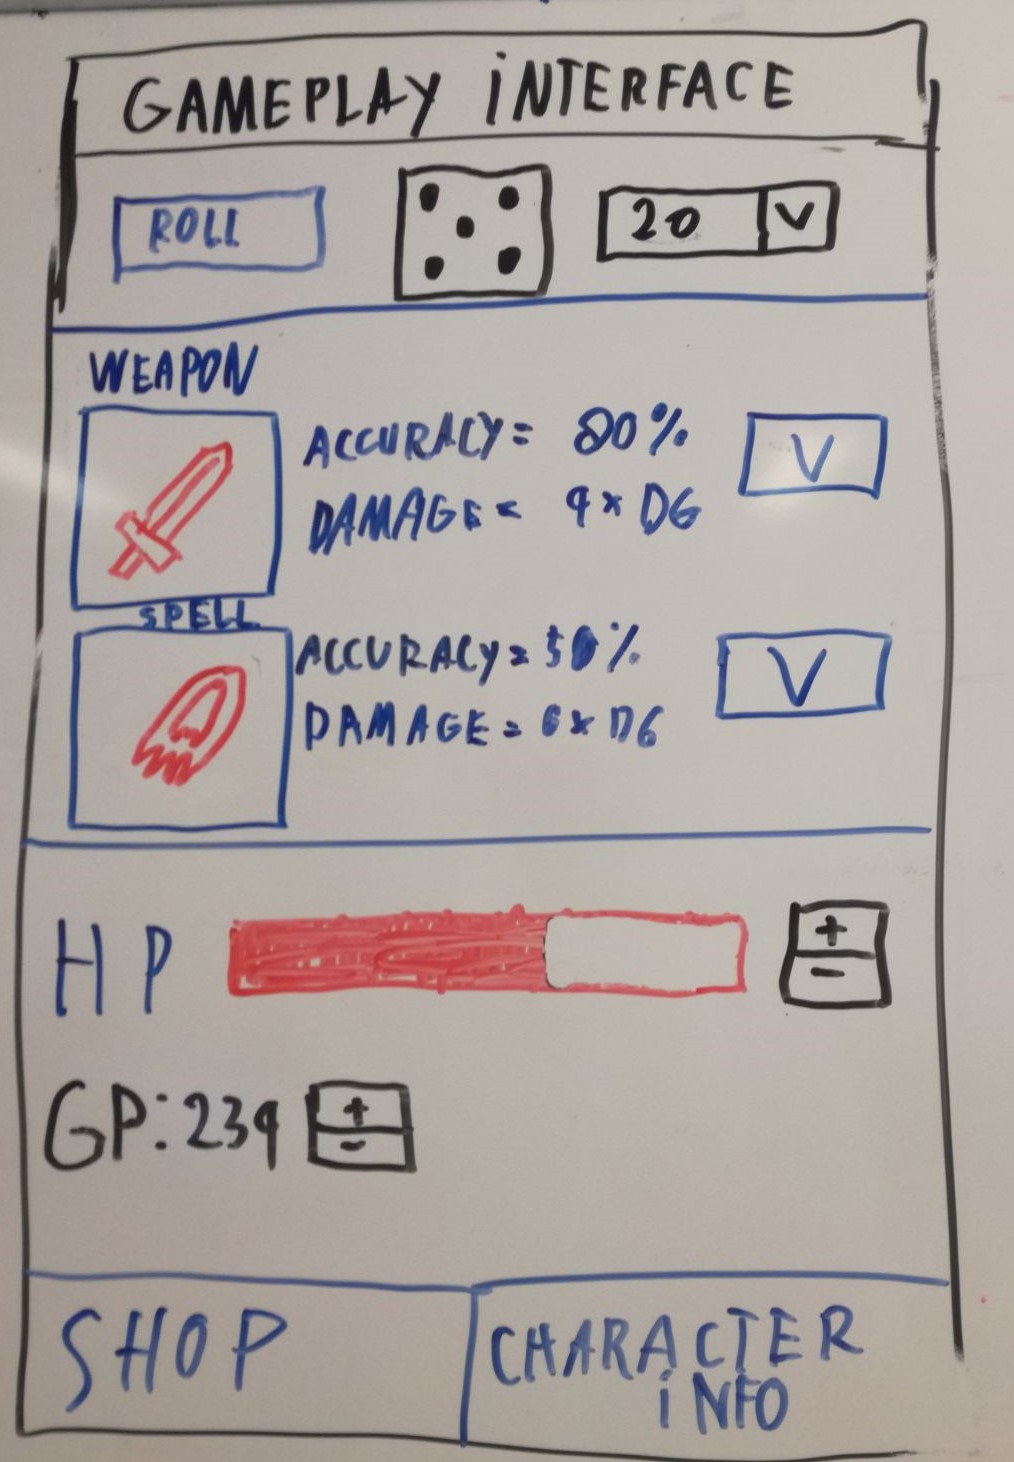 GAMEPLAY INTERFACE
ROLL
20 V
WEAPON
ACCURACY = 80%
DAMAGE = 4 x D6
V
SPELL
ACCURACY = 50%
DAMAGE = 6 x D6
V
HP
+
-
GP: 234
+
-
SHOP
CHARACTER
INFO